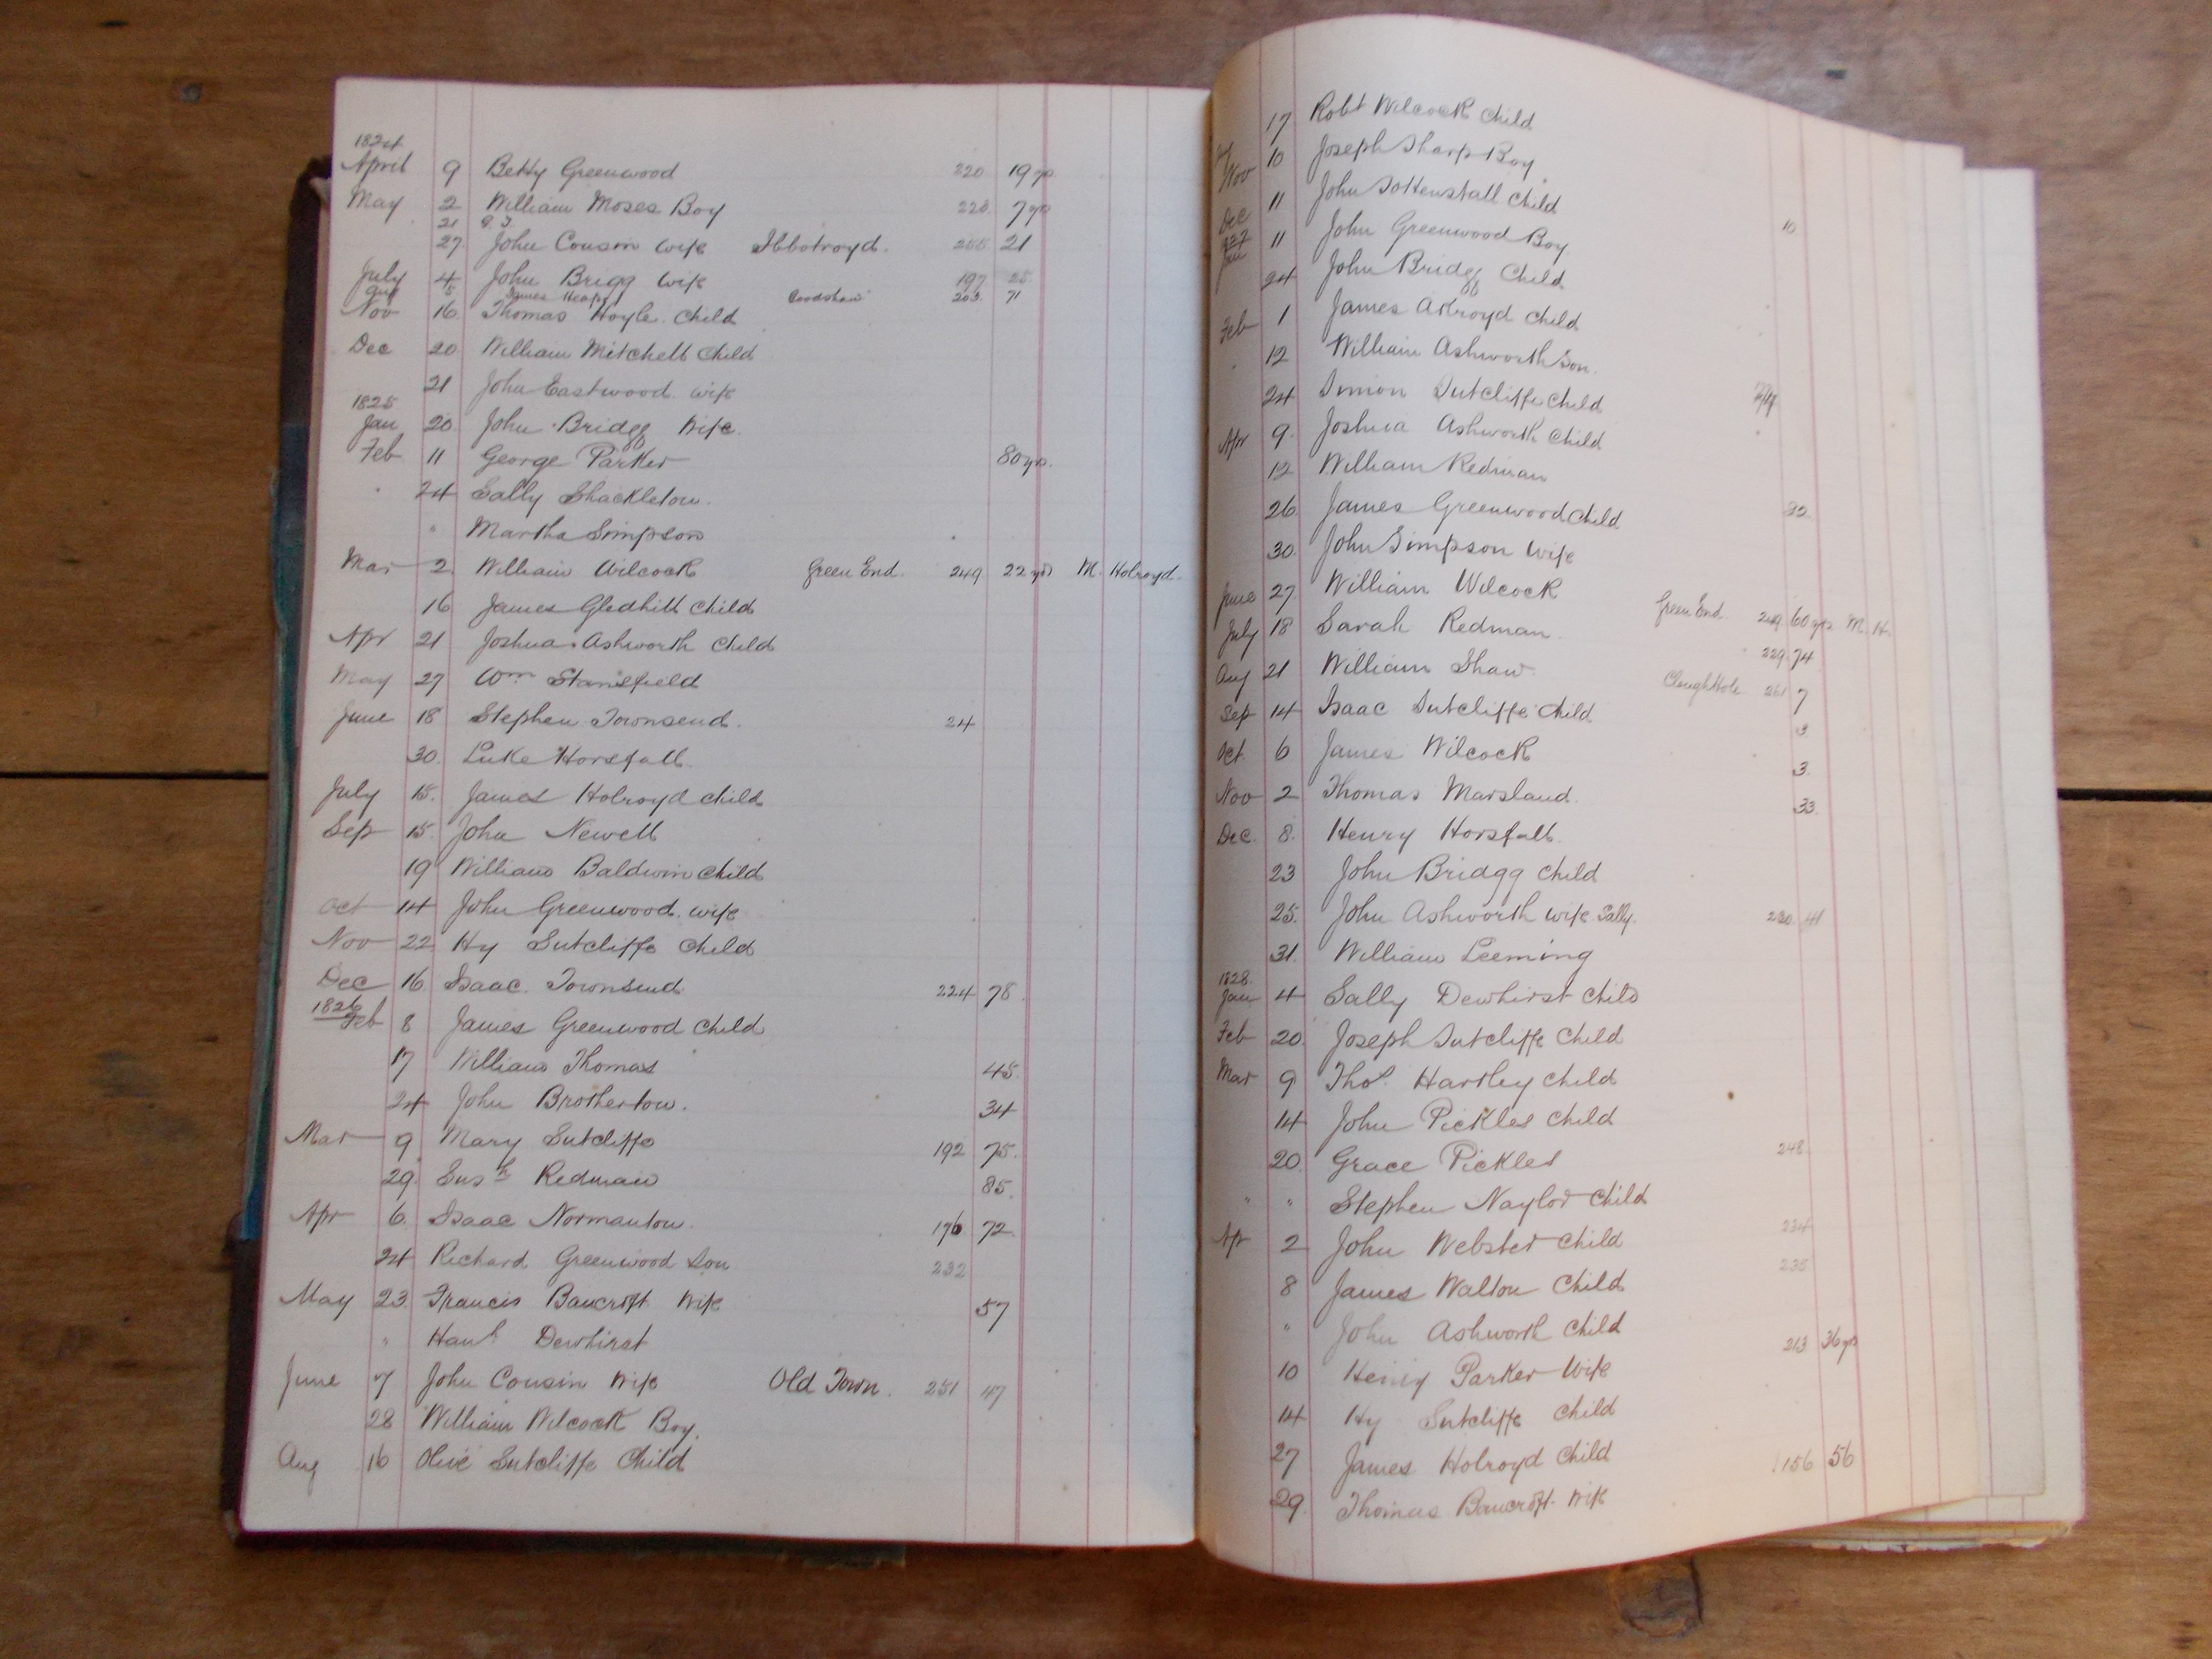 1824
April 9 Betty Greenwood 220 19 yrs
May 2 William Moses Boy 228 7 yrs
21 G. T.
27 John Cousin wife Ibbotroyd. 255 21
July 4 John Brigg wife 197 25
Aug 5 James Heap 203 71
Nov 16 Thomas Hoyle Child
Dec 20 William Mitchell Child
21 John Eastwood wife
1825
Jan 20 John Bridgg Wife
Feb 11 George Parker 80 yrs.
24 Sally Shackleton.
" Martha Simpson
Mar 2 William Wilcock Green End. 249 22 yrs M. Holroyd.
16 James Gledhill Child
Apr 21 Joshua Ashworth Child
May 27 Wm Stansfield
June 18 Stephen Townsend. 24
30 Luke Horsfall.
July 15. James Holroyd child
Sep 15. John Newell
19 William Baldwin child
Oct 14 John Greenwood. wife
Nov 22 Hy Sutcliffe Child
Dec 16 Isaac Townsend 224 78.
1826
Feb 8 James Greenwood child
17 William Thomas 45.
24 John Brotherton. 34
Mar 9 Mary Sutcliffe 192 75.
29 Sush Redman 85.
Apr 6. Isaac Normanton. 176 72.
24 Richard Greenwood Son 232
May 23. Francis Bancroft Wife 57
" Hanh Dewhirst
June 7 John Cousin Wife Old Town. 251 47
28 William Wilcock Boy.
Aug 16 Olive Sutcliffe Child
17 Robt Wilcock Child
Nov 10 Joseph Sharp Boy
Dec 11 John Sottenstall Child
1827
Jan 11 John Greenwood Boy 10
24 John Bridgg Child
Feb 1 James Akroyd Child
12 William Ashworth Son.
24 Simon Sutcliffe Child
Apr 9. Joshua Ashworth Child
12 William Redman
26 James Greenwood Child 32
30. John Simpson Wife
June 27 William Wilcock Green End. 249 60 yrs M. H.
July 18 Sarah Redman. 229 74
Aug 21 William Shaw. Clough Hole 261 7
Sep 14 Isaac Sutcliffe Child 3
Oct. 6 James Wilcock 3.
Nov 2 Thomas Marsland. 33
Dec. 8. Henry Horsfall.
23 John Bridgg child
25. John Ashworth wife Sally. 230 41
31. William Leeming
1828.
Jan 4 Sally Dewhirst Child
Feb 20. Joseph Sutcliffe Child
Mar 9 Thos. Hartley child
14 John Pickles child
20. Grace Pickles 248
" " Stephen Naylor Child
Apr 2 John Webster child 234
8 James Walton Child 235
" John Ashworth Child
10 Henry Parker Wife 213 36 yrs
14 Hy Sutcliffe Child
27 James Holroyd Child
29. Thomas Bancroft Wife 156 56